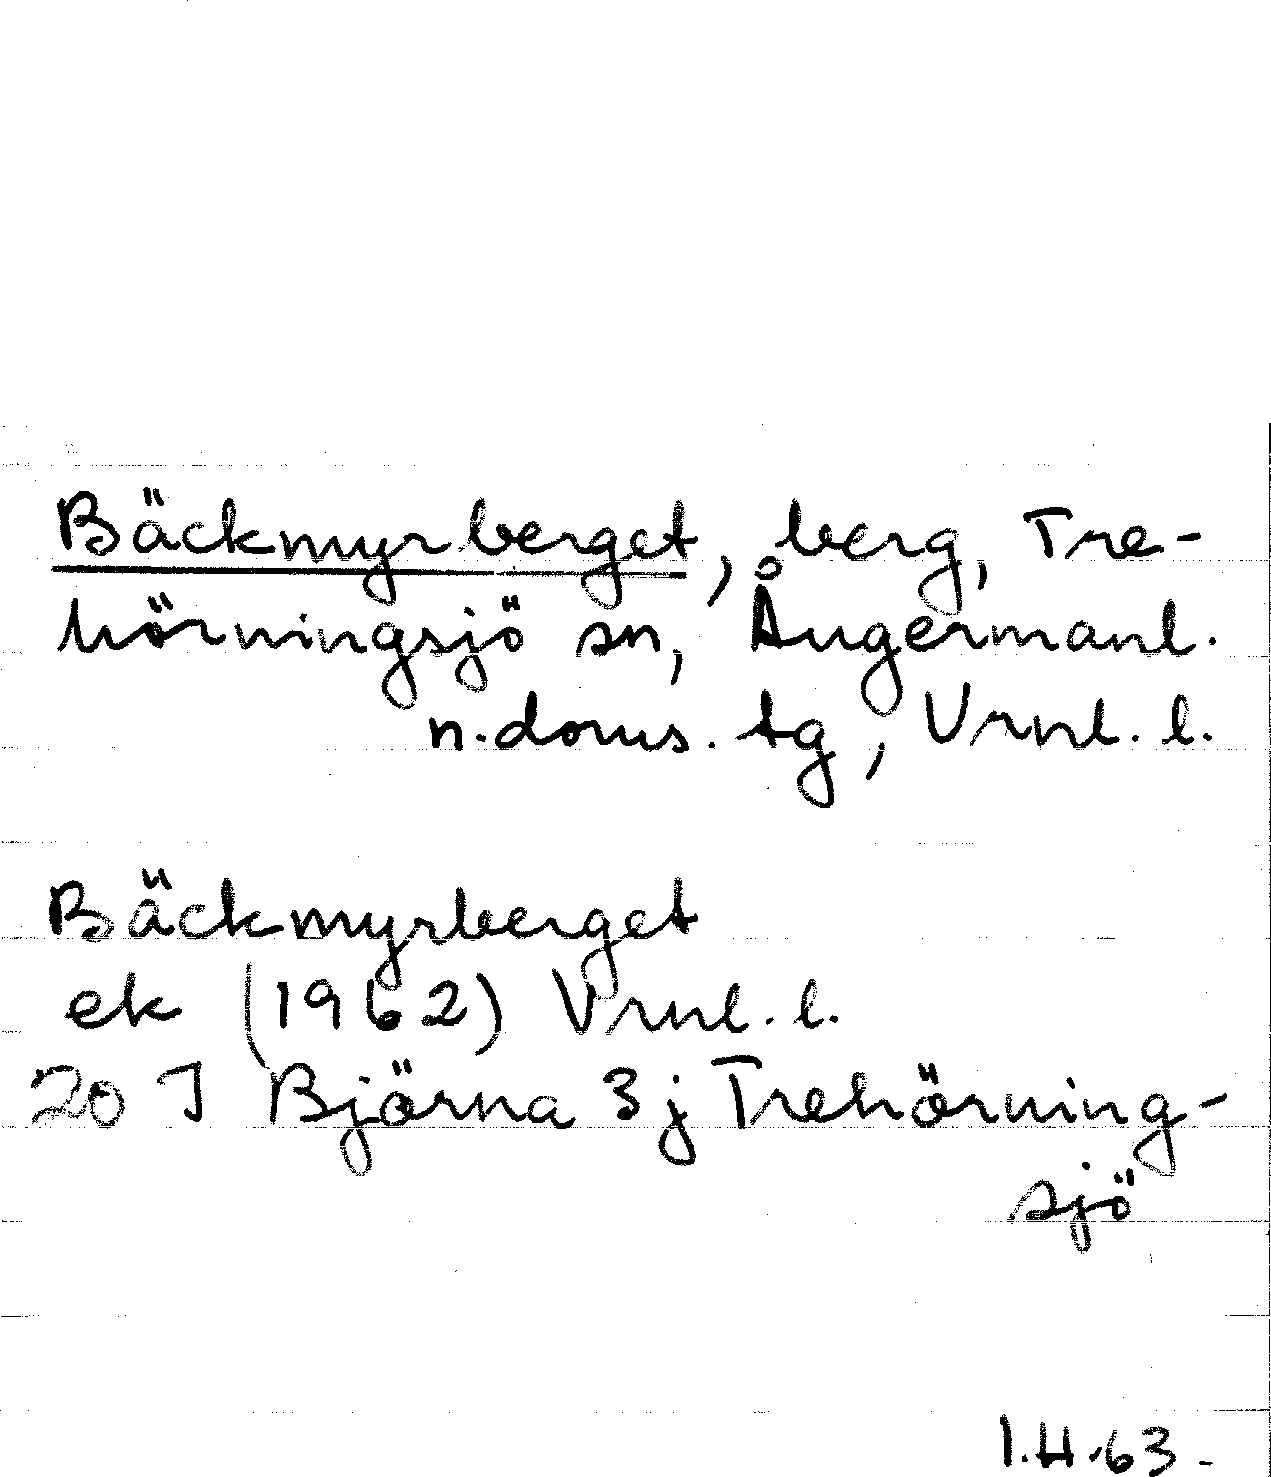 Bäckmyrberget, berg, Tre-
hörningsjö sn, Ångermanl.
n. doms. tg, Vrnl. l.
Bäckmyrberget
ek (1962) Vrnl. l.
20 J Björna 3 j Trehörning-
sjö
I.H.63.